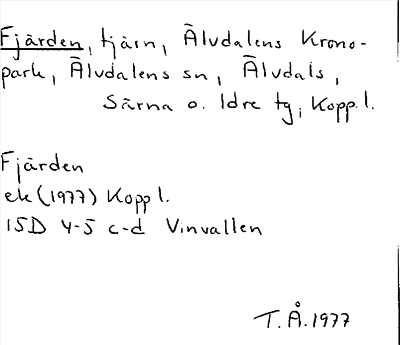 Fjärden, tjärn, Älvdalens Krono-
park, Älvdalens sn, Älvdals,
Särna o. Idre tg, Kopp.l.
Fjärden
ek (1977) Kopp l.
15D 4-5 c-d Vinvallen
T.Å.1977